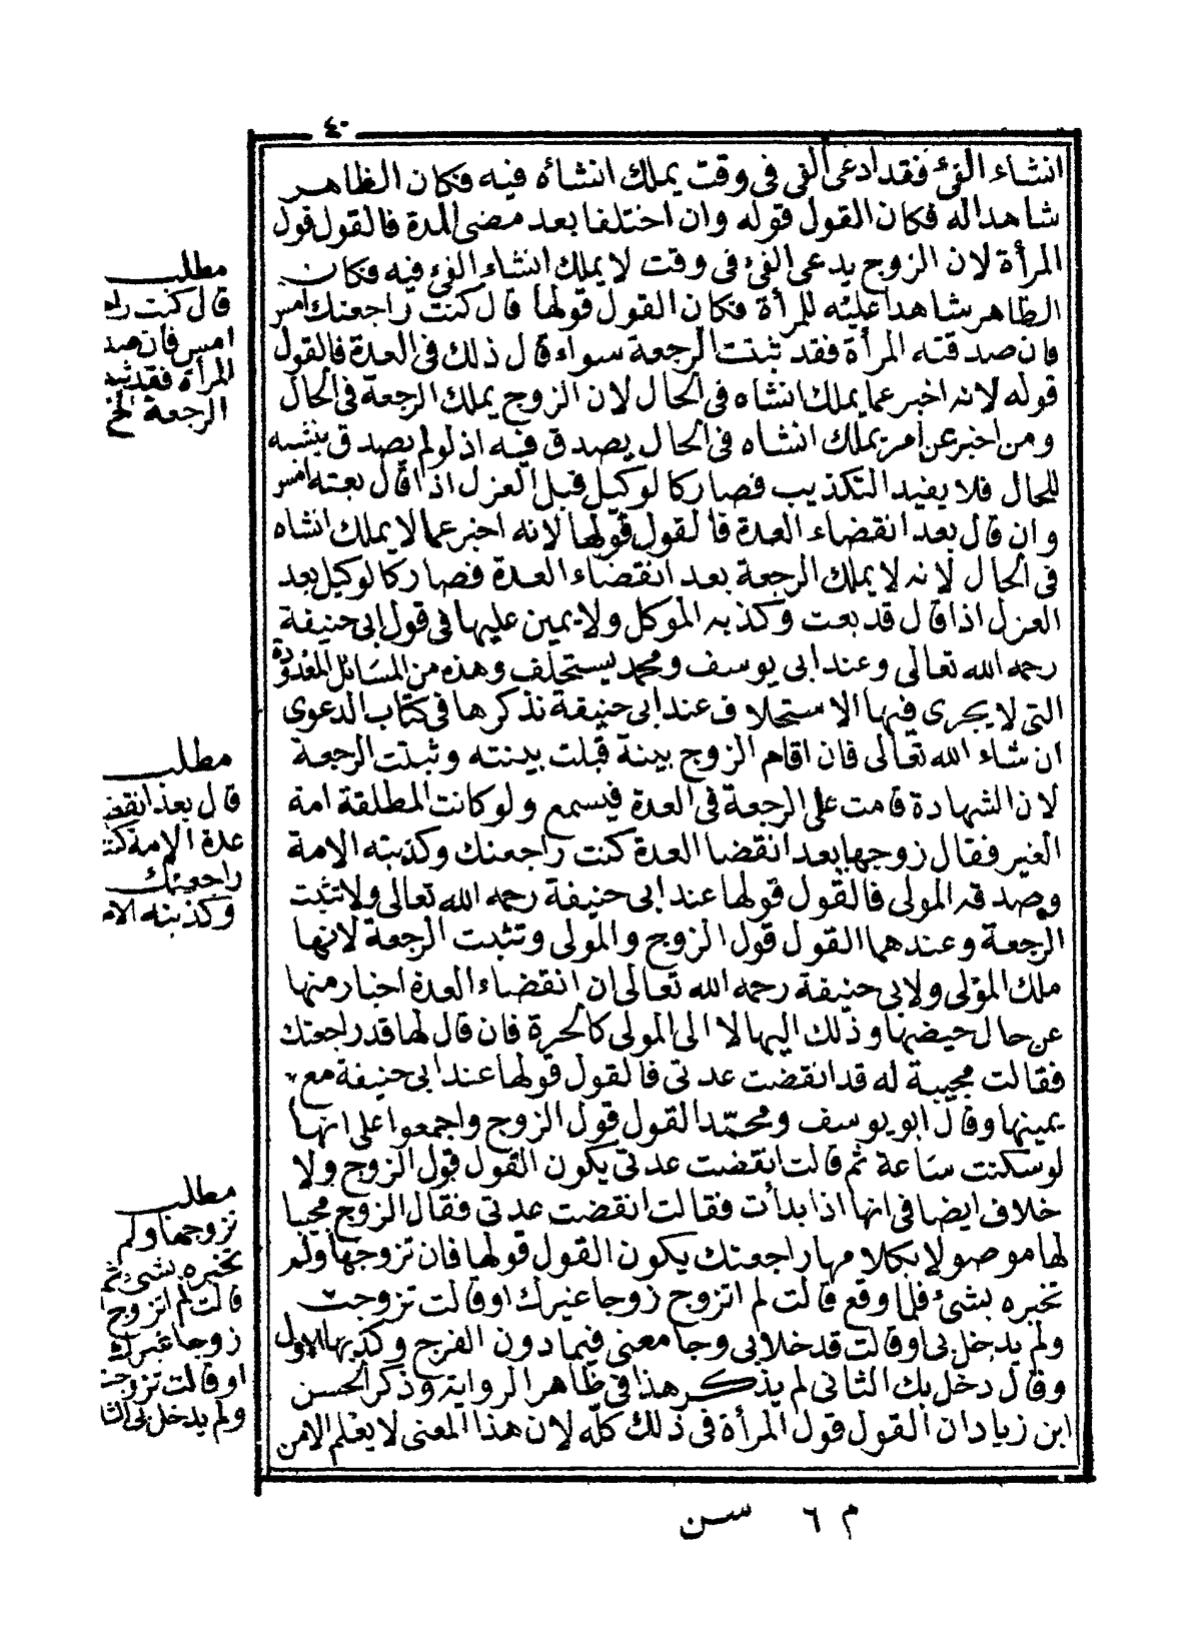 ٤٠
انشاء الفئ فقد ادعى الفئ فى وقت يملك انشاه فيه فكان الظاهر
شاهدا له فكان القول قوله وان اختلفا بعد مضى المدة فالقول قول
المرأة لان الزوج يدعى الفئ فى وقت لا يملك انشاء الفئ فيه فكان
الظاهر شاهدا عليه للمرأة فكان القول قولها قال كنت راجعتك امس
فان صدقته المرأة فقد ثبتت الرجعة سواء قال ذلك فى العدة فالقول
قوله لانه اخبر عما يملك انشاه فى الحال لان الزوج يملك الرجعة فى الحال
ومن اخبر عن امر يملك انشاه فى الحال يصدق فيه اذ لو لم يصدق ينشيه
للحال فلا يفيد التكذيب فصار كالوكيل قبل العزل اذا قال بعته امس
وان قال بعد انقضاء العدة فالقول قولها لانه اخبر عما لا يملك انشاه
فى الحال لانه لا يملك الرجعة بعد انقضاء العدة فصار كالوكيل بعد
العزل اذا قال قد بعت وكذبه الموكل ولا يمين عليها فى قول ابى حنيفة
رحمه الله تعالى وعند ابى يوسف ومحمد يستحلف وهذه من المسائل المعدودة
التى لا يجرى فيها الاستحلاف عند ابى حنيفة نذكرها فى كتاب الدعوى
ان شاء الله تعالى فان اقام الزوج بينة قبلت بينته وثبتت الرجعة
لان الشهادة قامت على الرجعة فى العدة فيسمع ولو كانت المطلقة امة
الغير فقال زوجها بعد انقضا العدة كنت راجعتك وكذبته الامة
وصدقه المولى فالقول قولها عند ابى حنيفة رحمه الله تعالى ولا تثبت
الرجعة وعندهما القول قول الزوج والمولى وتثبت الرجعة لانها
ملك المولى ولابى حنيفة رحمه الله تعالى ان انقضاء العدة اخبار منها
عن حال حيضها وذلك اليها لا الى المولى كالحرة فان قال لها قد راجعتك
فقالت مجيبة له قد انقضت عدتى فالقول قولها عند ابى حنيفة مع
يمينها وقال ابو يوسف ومحمّد القول قول الزوج واجمعوا على انها
لو سكتت ساعة ثم قالت انقضت عدتى يكون القول قول الزوج ولا
خلاف ايضا فى انها اذا بدأت فقالت انقضت عدتى فقال الزوج مجيبا
لها موصولا بكلامها راجعتك يكون القول قولها فان تزوجها ولم
تخبره بشئ فلما وقع قالت لم اتزوج زوجا غيرك او قالت تزوجت
ولم يدخل بى او قالت قد خلا بى وجامعنى فيما دون الفرج وكذبها الاول
وقال دخل بك الثانى لم يذكر هذا فى ظاهر الرواية وذكر الحسن
ابن زياد ان القول قول المرأة فى ذلك كله لان هذا المعنى لا يعلم الا من
مطلب
قال كنت راجـ
امس فان صد
المرأة فقد ثبتـ
الرجعة الخ
مطلب
قال بعد انقضـ
عدة الامة كنت
راجعتك
وكذبته الامـ
مطلب
تزوجها ولم
تخبره بشئ ثم
قالت لم اتزوج
زوجا غيرك
او قالت تزوجت
ولم يدخل بى الثا
م ٦ سن